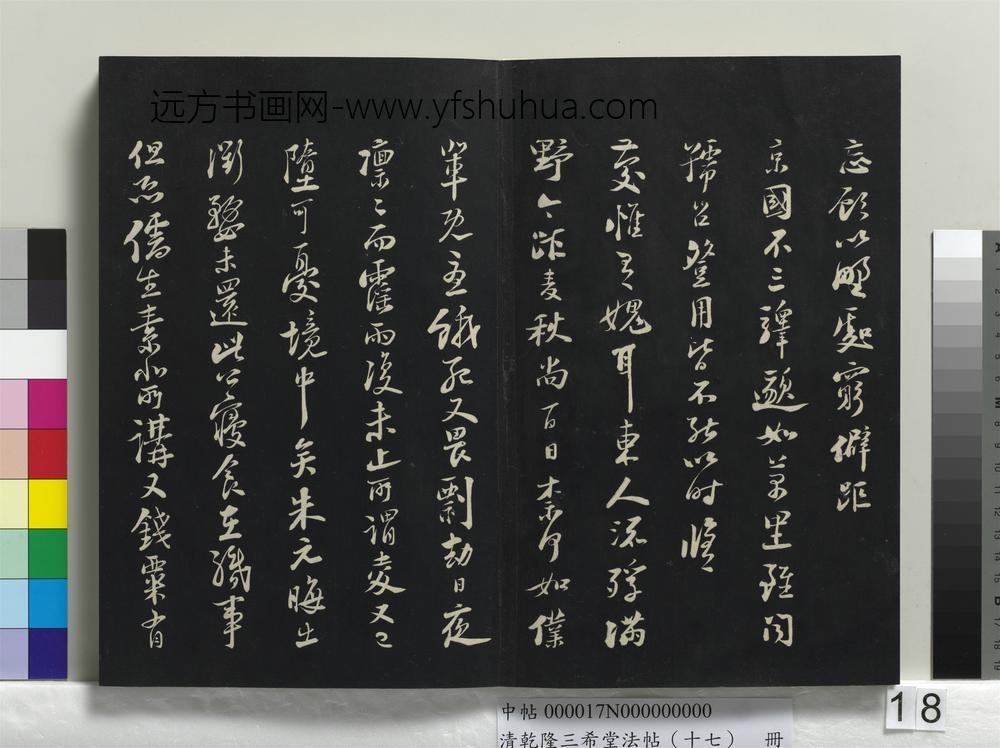 远方书画网-www.yfshuhua.com
忘欣以野處窮僻距
京國不三驛邈如萬里雖聞
號召登用皆不能以时脩
慶惟有媿耳東人流殍满
野今距麦秋尚百日未知如僕
輩免至餓死又畏剽劫日夜
凛凛而霪雨復未止所謂麦又已
墮可憂境中矣朱元晦出
衢婺未還此公寢食在職事
但恐儒生素非所講又錢粟有
中帖 000017N000000000
清乾隆三希堂法帖（十七） 冊
18